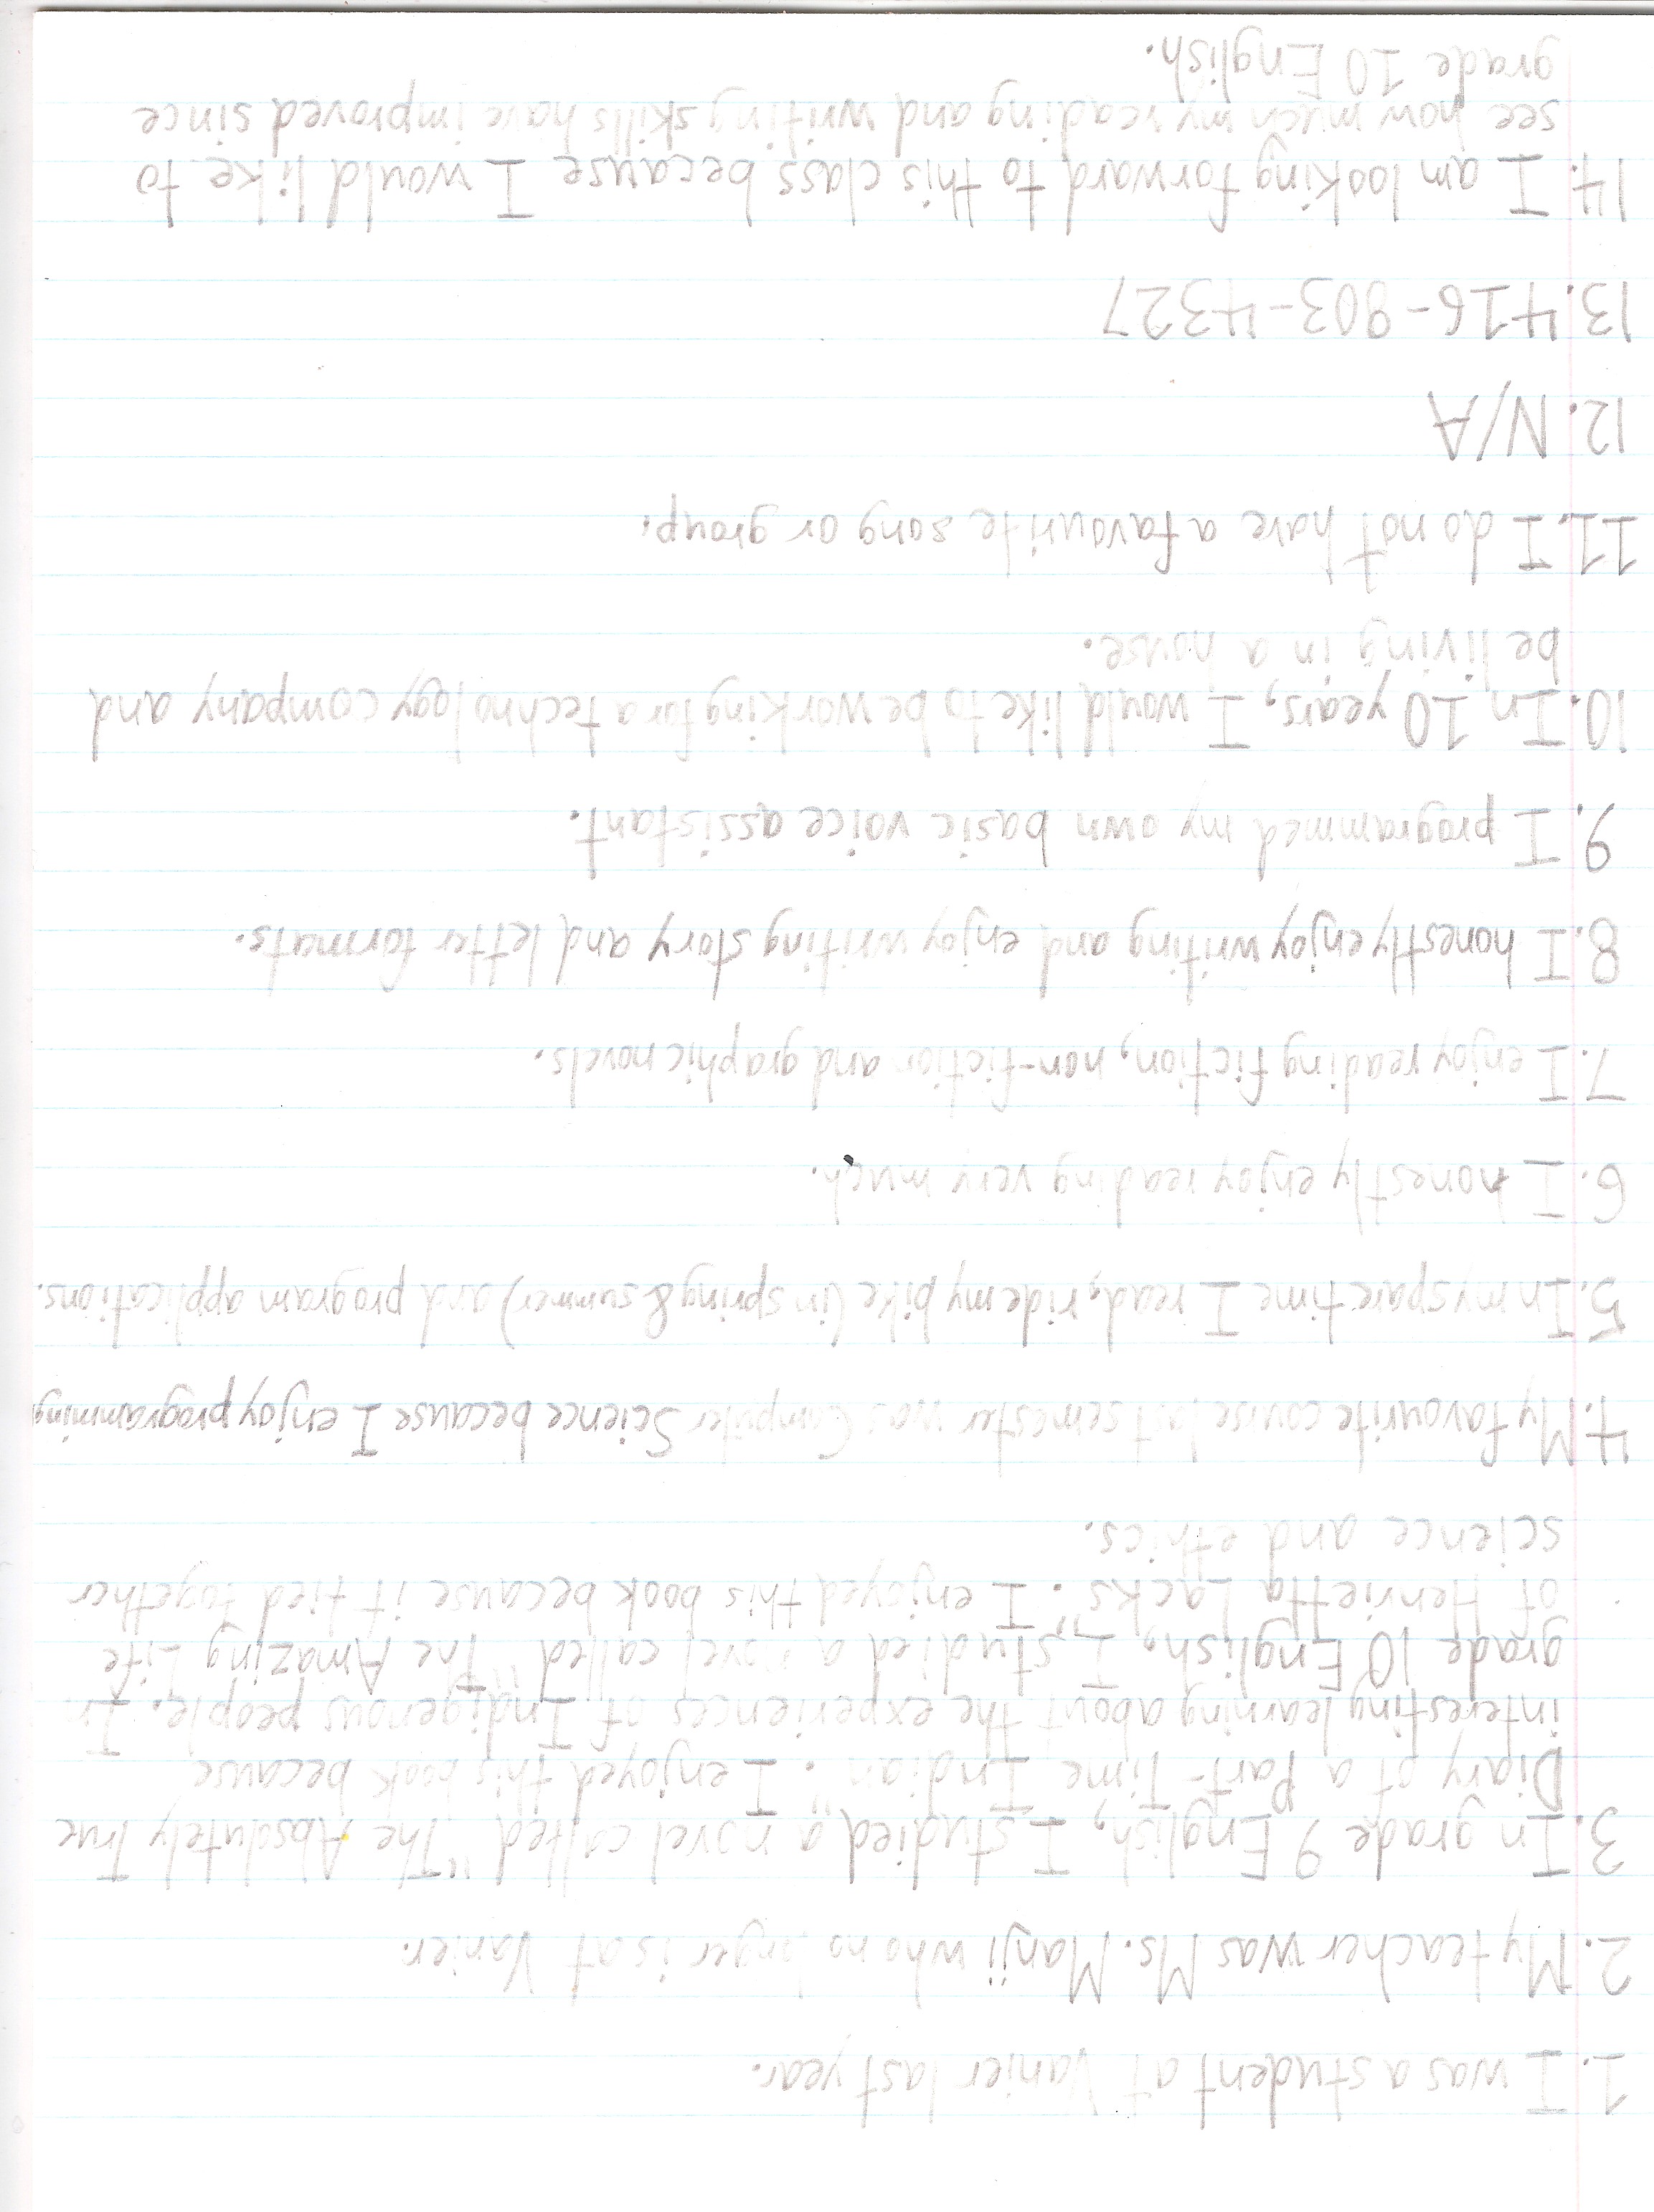 1. I was a student at Vanier last year.
2. My teacher was Ms. Manji who no longer is at Vanier.
3. In grade 9 English, I studied a novel called "The Absolutely True
Diary of a Part-Time Indian". I enjoyed this book because
interesting learning about the experiences of Indigenous people. In
grade 10 English, I studied a novel called "The Amazing Life
of Henrietta Lacks". I enjoyed this book because it tied together
science and ethics.
4. My favourite course last semester was Computer Science because I enjoy programming.
5. In my spare time I read, ride my bike (in spring & summer) and program applications.
6. I honestly enjoy reading very much.
7. I enjoy reading fiction, non-fiction and graphic novels.
8. I honestly enjoy writing and enjoy writing story and letter formats.
9. I programmed my own basic voice assistant.
10. In 10 years, I would like to be working for a technology company and
be living in a house.
11. I do not have a favourite song or group.
12. N/A
13. 416-803-4327
14. I am looking forward to this class because I would like to
see how much my reading and writing skills have improved since
grade 10 English.